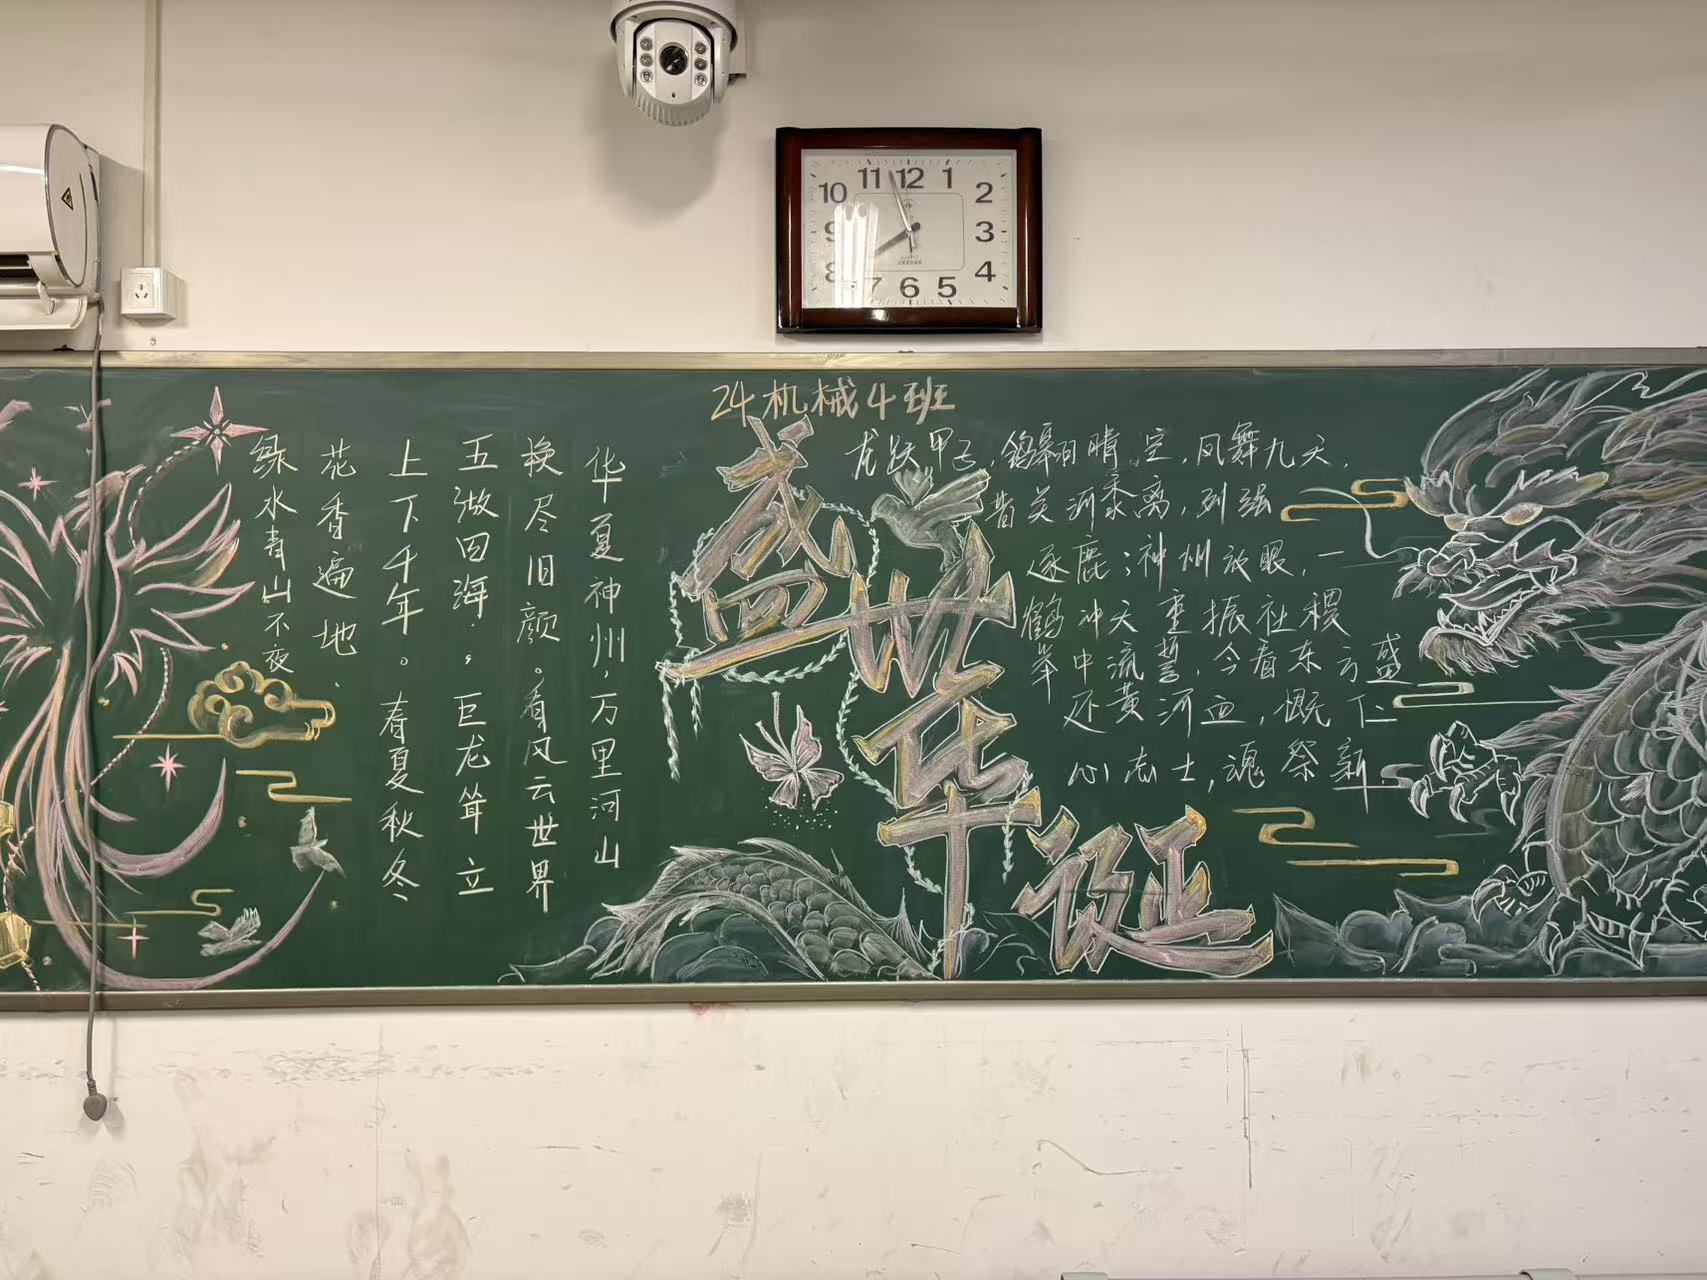 11 12 1
10 2
9 3
8 4
7 6 5
24机械4班
盛世华诞
龙跃甲子,鸽翱晴空,凤舞九天,
昔关河黍离,列强
逐鹿;神州放眼,一
鹤冲天重振社稷
举中流誓,今看东方盛
还黄河血,慨仁
心志士,魂祭新
华夏神州,万里河山
换尽旧颜。看风云世界
五做四海,巨龙耸立
上下千年。春夏秋冬
花香遍地,
绿水青山不夜